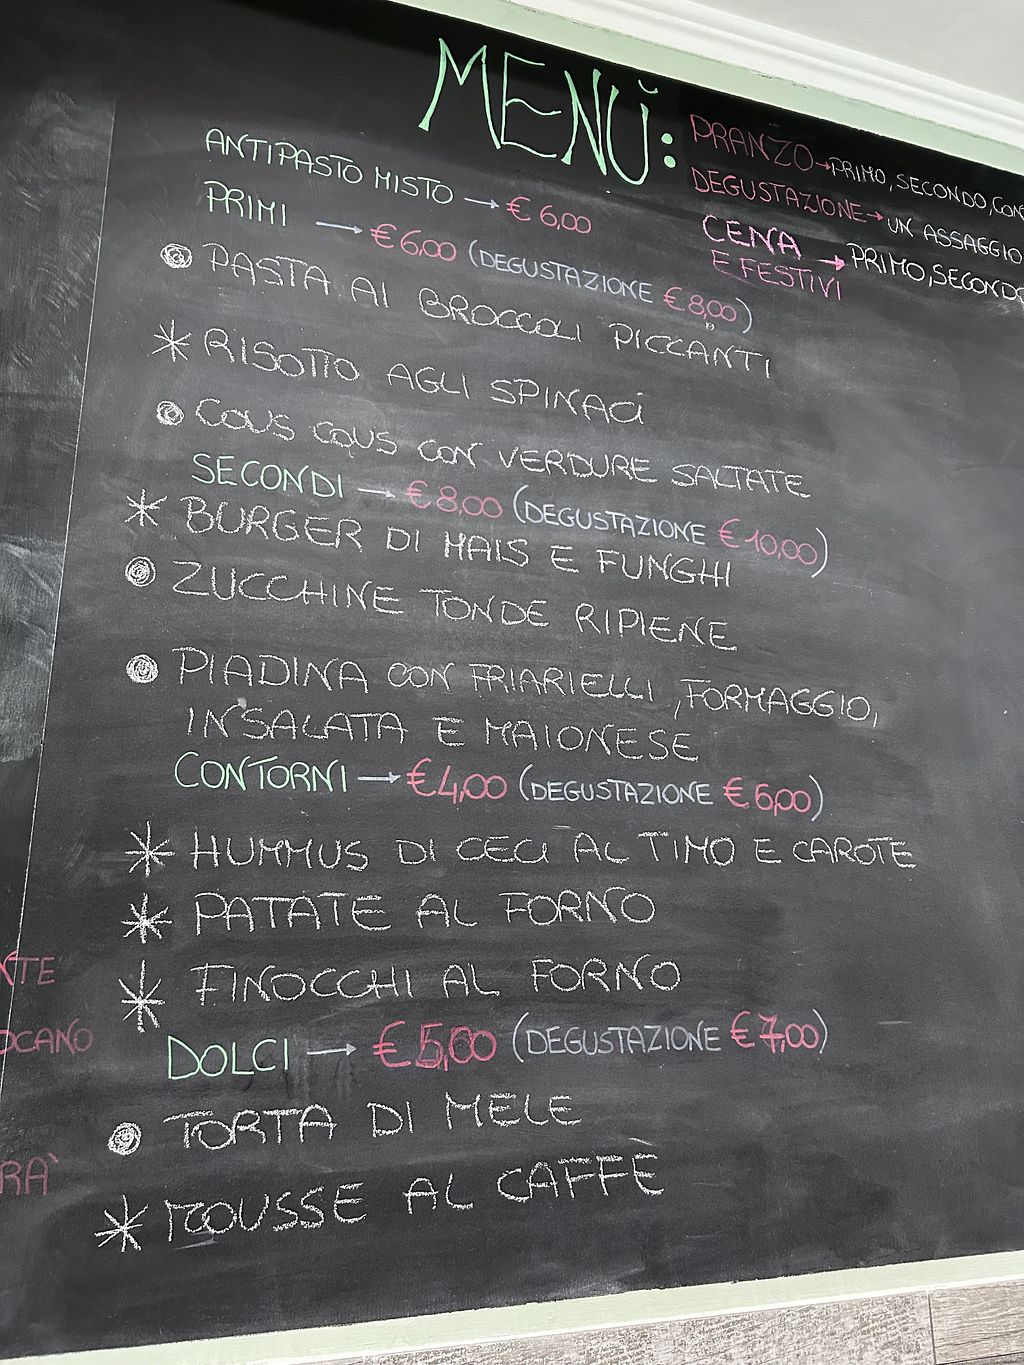 MENŬ:
PRANZO→PRIMO, SECONDO, CON
DEGUSTAZIONE→UN ASSAGGIO
CENA
E FESTIVI →PRIMO, SECONDO
ANTIPASTO MISTO → € 6,00
PRIMI → € 6,00 (DEGUSTAZIONE € 8,00)
PASTA AI BROCCOLI PICCANTI
* RISOTTO AGLI SPINACI
COUS COUS CON VERDURE SALTATE
SECONDI → € 8,00 (DEGUSTAZIONE € 10,00)
* BURGER DI MAIS E FUNGHI
ZUCCHINE TONDE RIPIENE
PIADINA CON FRIARIELLI, FORMAGGIO,
INSALATA E MAIONESE
CONTORNI → € 4,00 (DEGUSTAZIONE € 6,00)
* HUMMUS DI CECI AL TIMO E CAROTE
* PATATE AL FORNO
* FINOCCHI AL FORNO
DOLCI → € 5,00 (DEGUSTAZIONE € 7,00)
TORTA DI MELE
* MOUSSE AL CAFFÈ
NTE
OCANO
RÀ